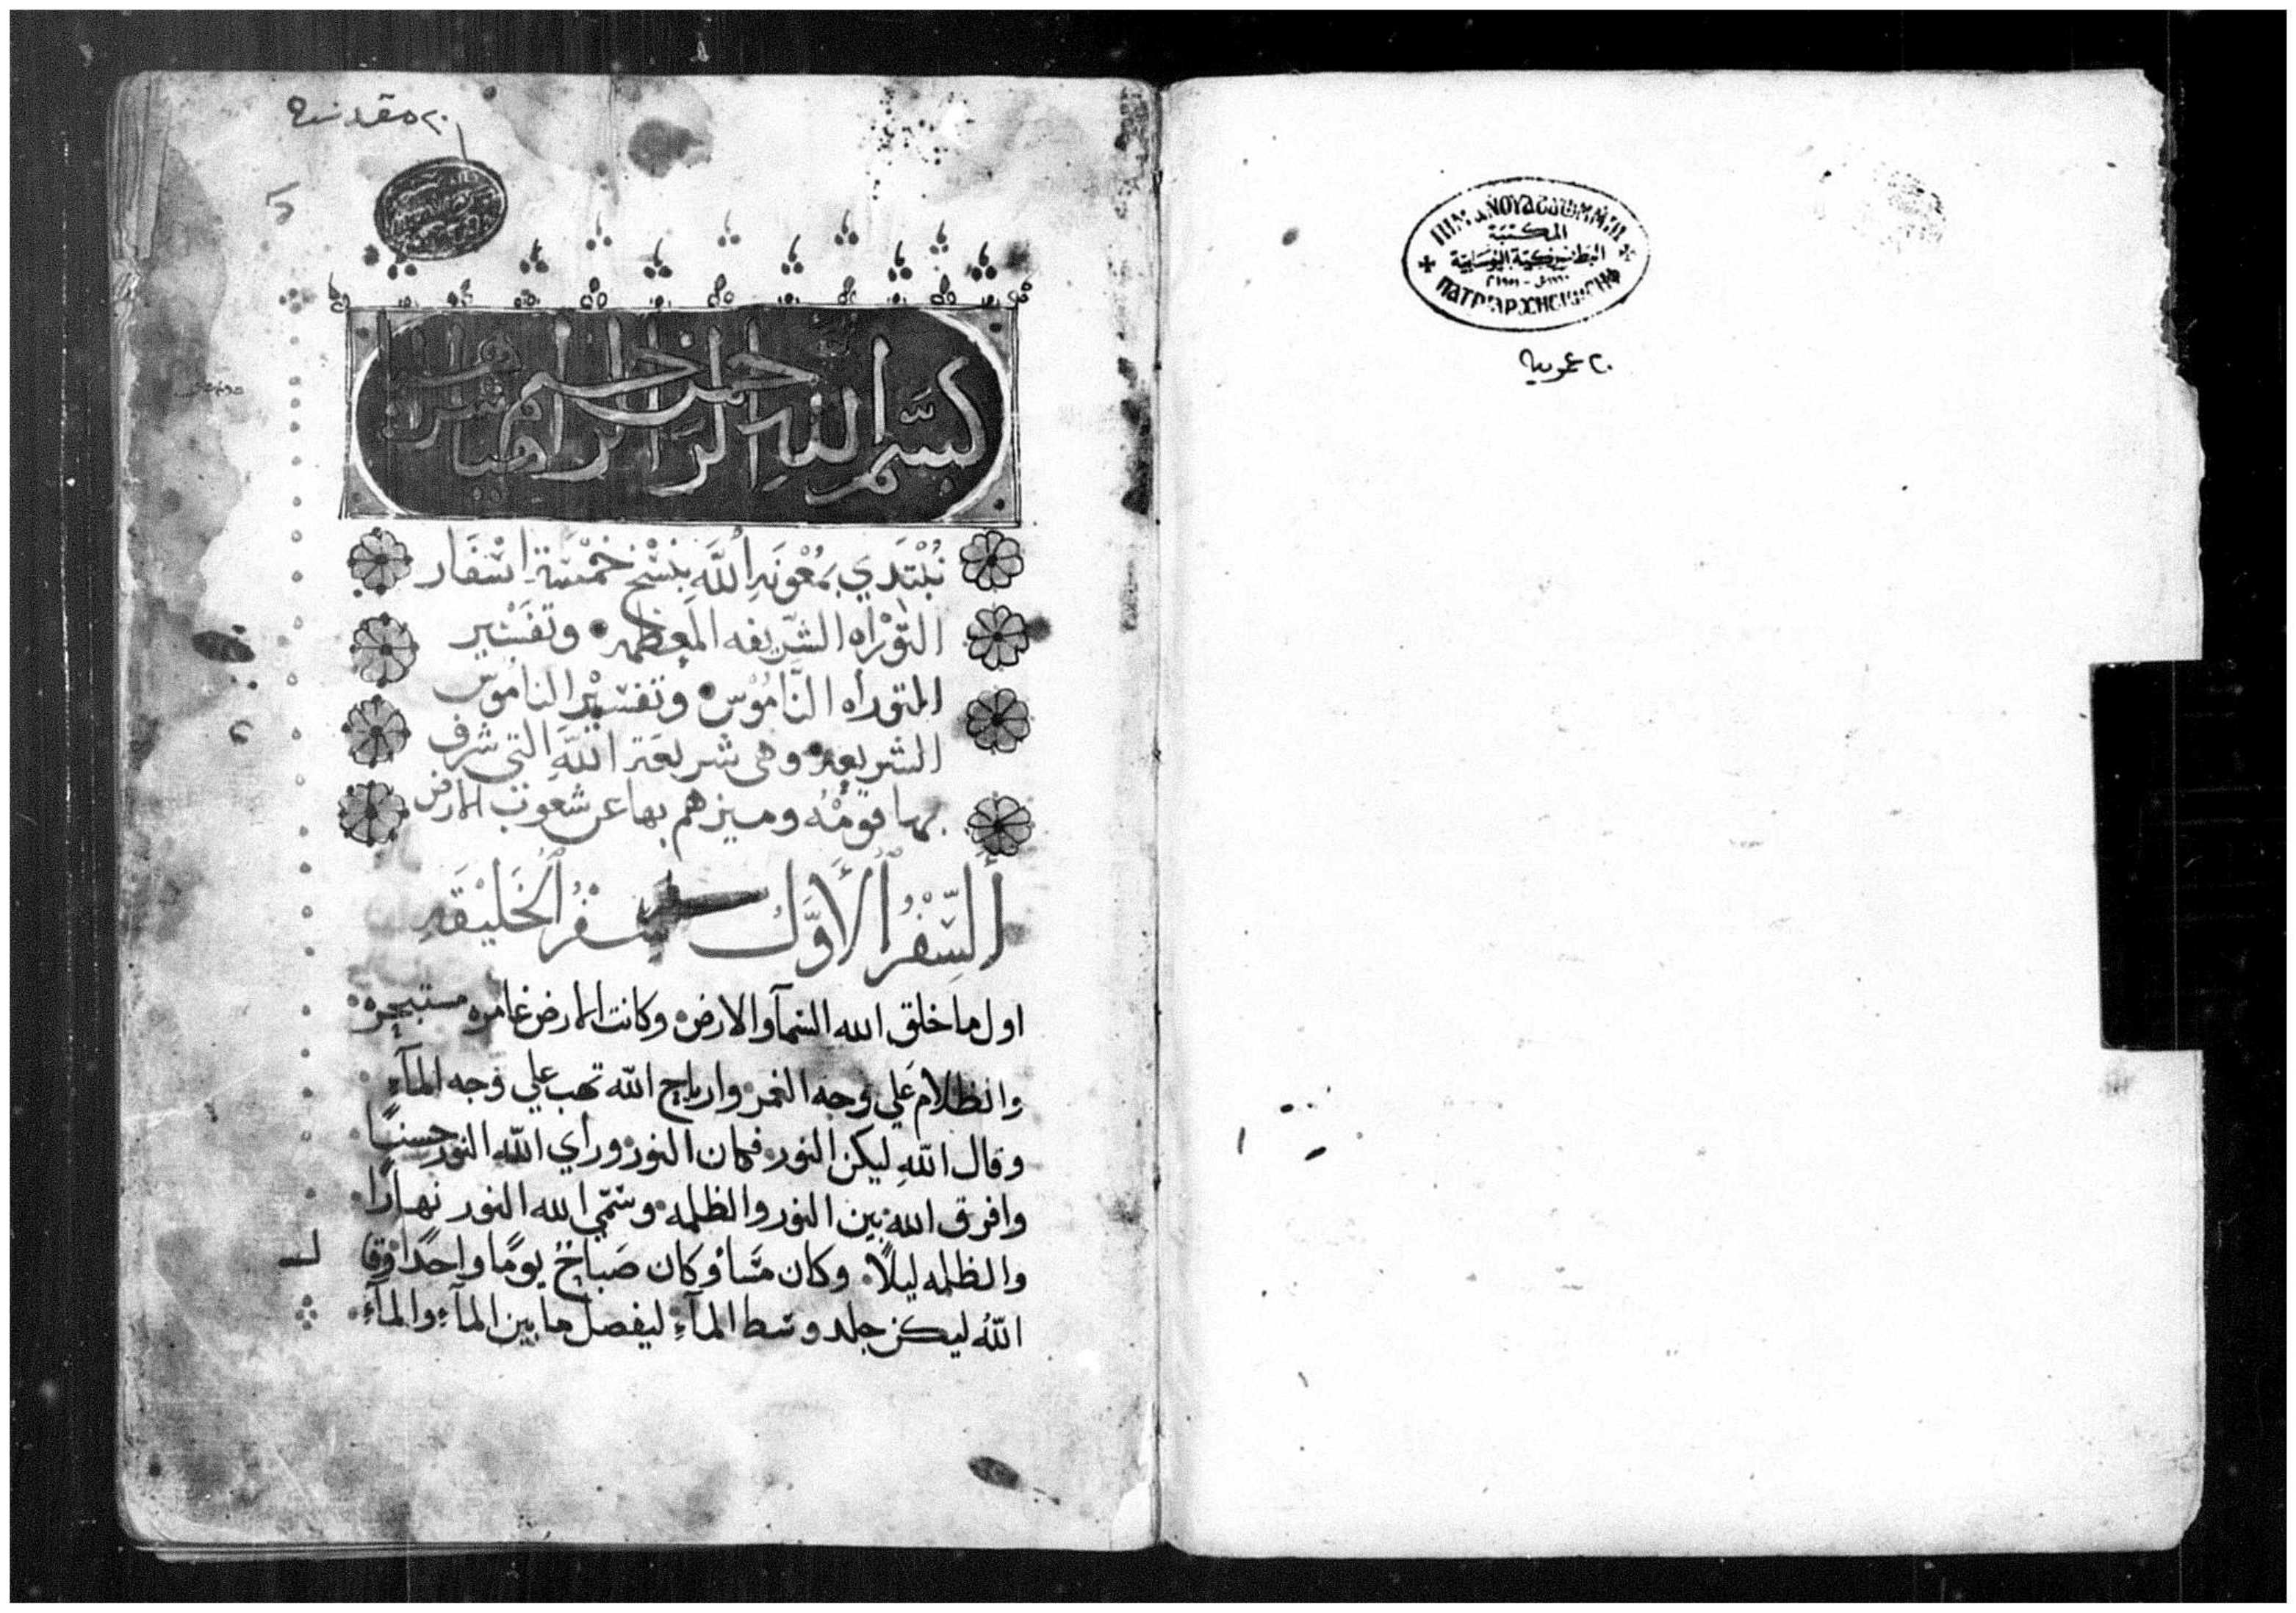 المكتبة
البطريركية
٢٠ عمومية
٢٠ مقدسة
بسم الله الراحم الرحيم
نبتدي بمعونة الله بنسخ خمسة اسفار
التوراه الشريفه المعظمه وتفسير
التوراه الناموس وتفسير الناموس
الشريعة وهى شريعة الله التي شرف
بها قومه وميزهم بها عن شعوب الارض
السفر الأول سفر الخليقه
اول ما خلق الله السمآ والارض وكانت الارض غامره مستبحره
والظلام على وجه الغمر وارياح الله تهب علي وجه المآء
وقال الله ليكن النور فكان النور وراي الله النور حسنًا
وافرق الله بين النور والظلمه وسمي الله النور نهارًا
والظلمه ليلاً وكان مسأ وكان صباحُ يومًا واحدًا وقا
لـ
اللهُ ليكن جلد وسط المآءِ ليفصل ما بين المآءِ والمآءِ